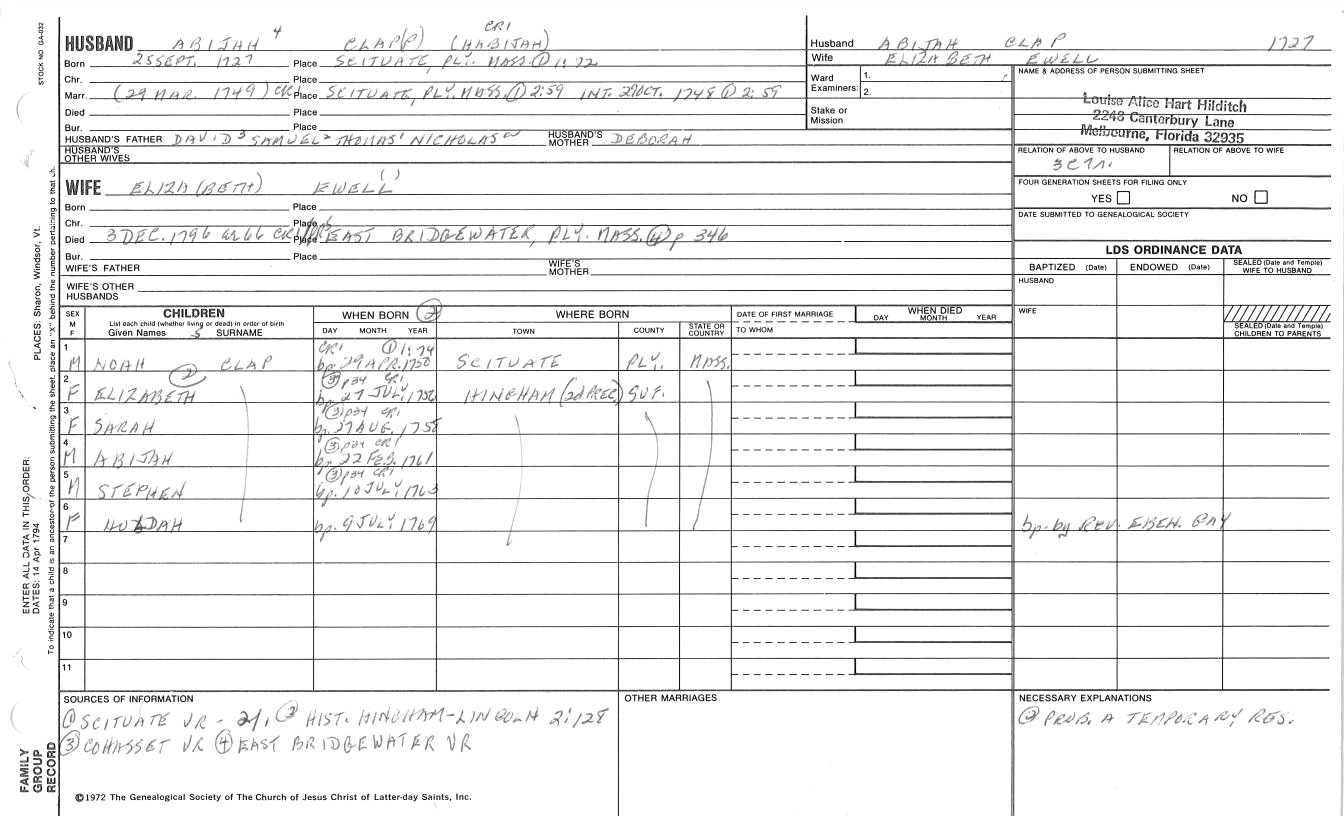 STOCK NO. GA-032
HUSBAND ABIJAH 4 CLAP(P) (HABIJAH) CR1
Born 25 SEPT. 1727 Place SCITUATE, PLY. MASS. ① 1:72
Chr. Place
Marr. (29 MAR. 1749) CR1 Place SCITUATE, PLY. MASS. ① 2:59 INT. 29 OCT. 1748 ① 2:59
Died Place
Bur. Place
HUSBAND'S FATHER DAVID 3 SAMUEL 2 THOMAS 1 NICHOLAS HUSBAND'S MOTHER DEBORAH
HUSBAND'S OTHER WIVES
WIFE ELIZA(BETH) EWELL ( )
Born Place
Chr. Place
Died 3 DEC. 1796 ae 66 CR1 Place EAST BRIDGEWATER, PLY. MASS. ④ p 346
Bur. Place
WIFE'S FATHER WIFE'S MOTHER
WIFE'S OTHER HUSBANDS
Husband ABIJAH CLAP 1727
Wife ELIZABETH EWELL
Ward Examiners: 1.
2.
Stake or Mission
NAME & ADDRESS OF PERSON SUBMITTING SHEET
Louise Alice Hart Hilditch
2246 Canterbury Lane
Melbourne, Florida 32935
RELATION OF ABOVE TO HUSBAND RELATION OF ABOVE TO WIFE
FOUR GENERATION SHEETS FOR FILING ONLY
YES NO
DATE SUBMITTED TO GENEALOGICAL SOCIETY
LDS ORDINANCE DATA
BAPTIZED (Date) ENDOWED (Date) SEALED (Date and Temple) WIFE TO HUSBAND
HUSBAND
WIFE
SEALED (Date and Temple) CHILDREN TO PARENTS
SEX M F CHILDREN WHEN BORN ② WHERE BORN DATE OF FIRST MARRIAGE WHEN DIED
List each child (whether living or dead) in order of birth
Given Names 5 SURNAME DAY MONTH YEAR TOWN COUNTY STATE OR COUNTRY TO WHOM DAY MONTH YEAR
1 CR1 ① 1:74
M NOAH CLAP bp. 29 APR. 1750 SCITUATE PLY. MASS.
2 ② ③ p34 CR1
F ELIZABETH bp. 27 JULY, 1756 HINGHAM (2d PREC) SUF.
3 ③ p34 CR1
F SARAH bp. 27 AUG. 1758
4 ③ p34 CR1
M ABIJAH bp. 22 FEB. 1761
5 ③ p34 CR1
M STEPHEN bp. 10 JULY, 1763
6
F HULDAH bp. 9 JULY 1769 bp. by REV. EBEN. GAY
7
8
9
10
11
SOURCES OF INFORMATION
① SCITUATE VR - ② HIST. HINGHAM-LINCOLN 2:128
③ COHASSET VR ④ EAST BRIDGEWATER VR
OTHER MARRIAGES
NECESSARY EXPLANATIONS
② PROB. A TEMPORARY RES.
©1972 The Genealogical Society of The Church of Jesus Christ of Latter-day Saints, Inc.
FAMILY
GROUP
RECORD
ENTER ALL DATA IN THIS ORDER:
DATES: 14 Apr 1794
PLACES: Sharon, Windsor, Vt.
To indicate that a child is an ancestor of the person submitting the sheet, place an "X" behind the number pertaining to that